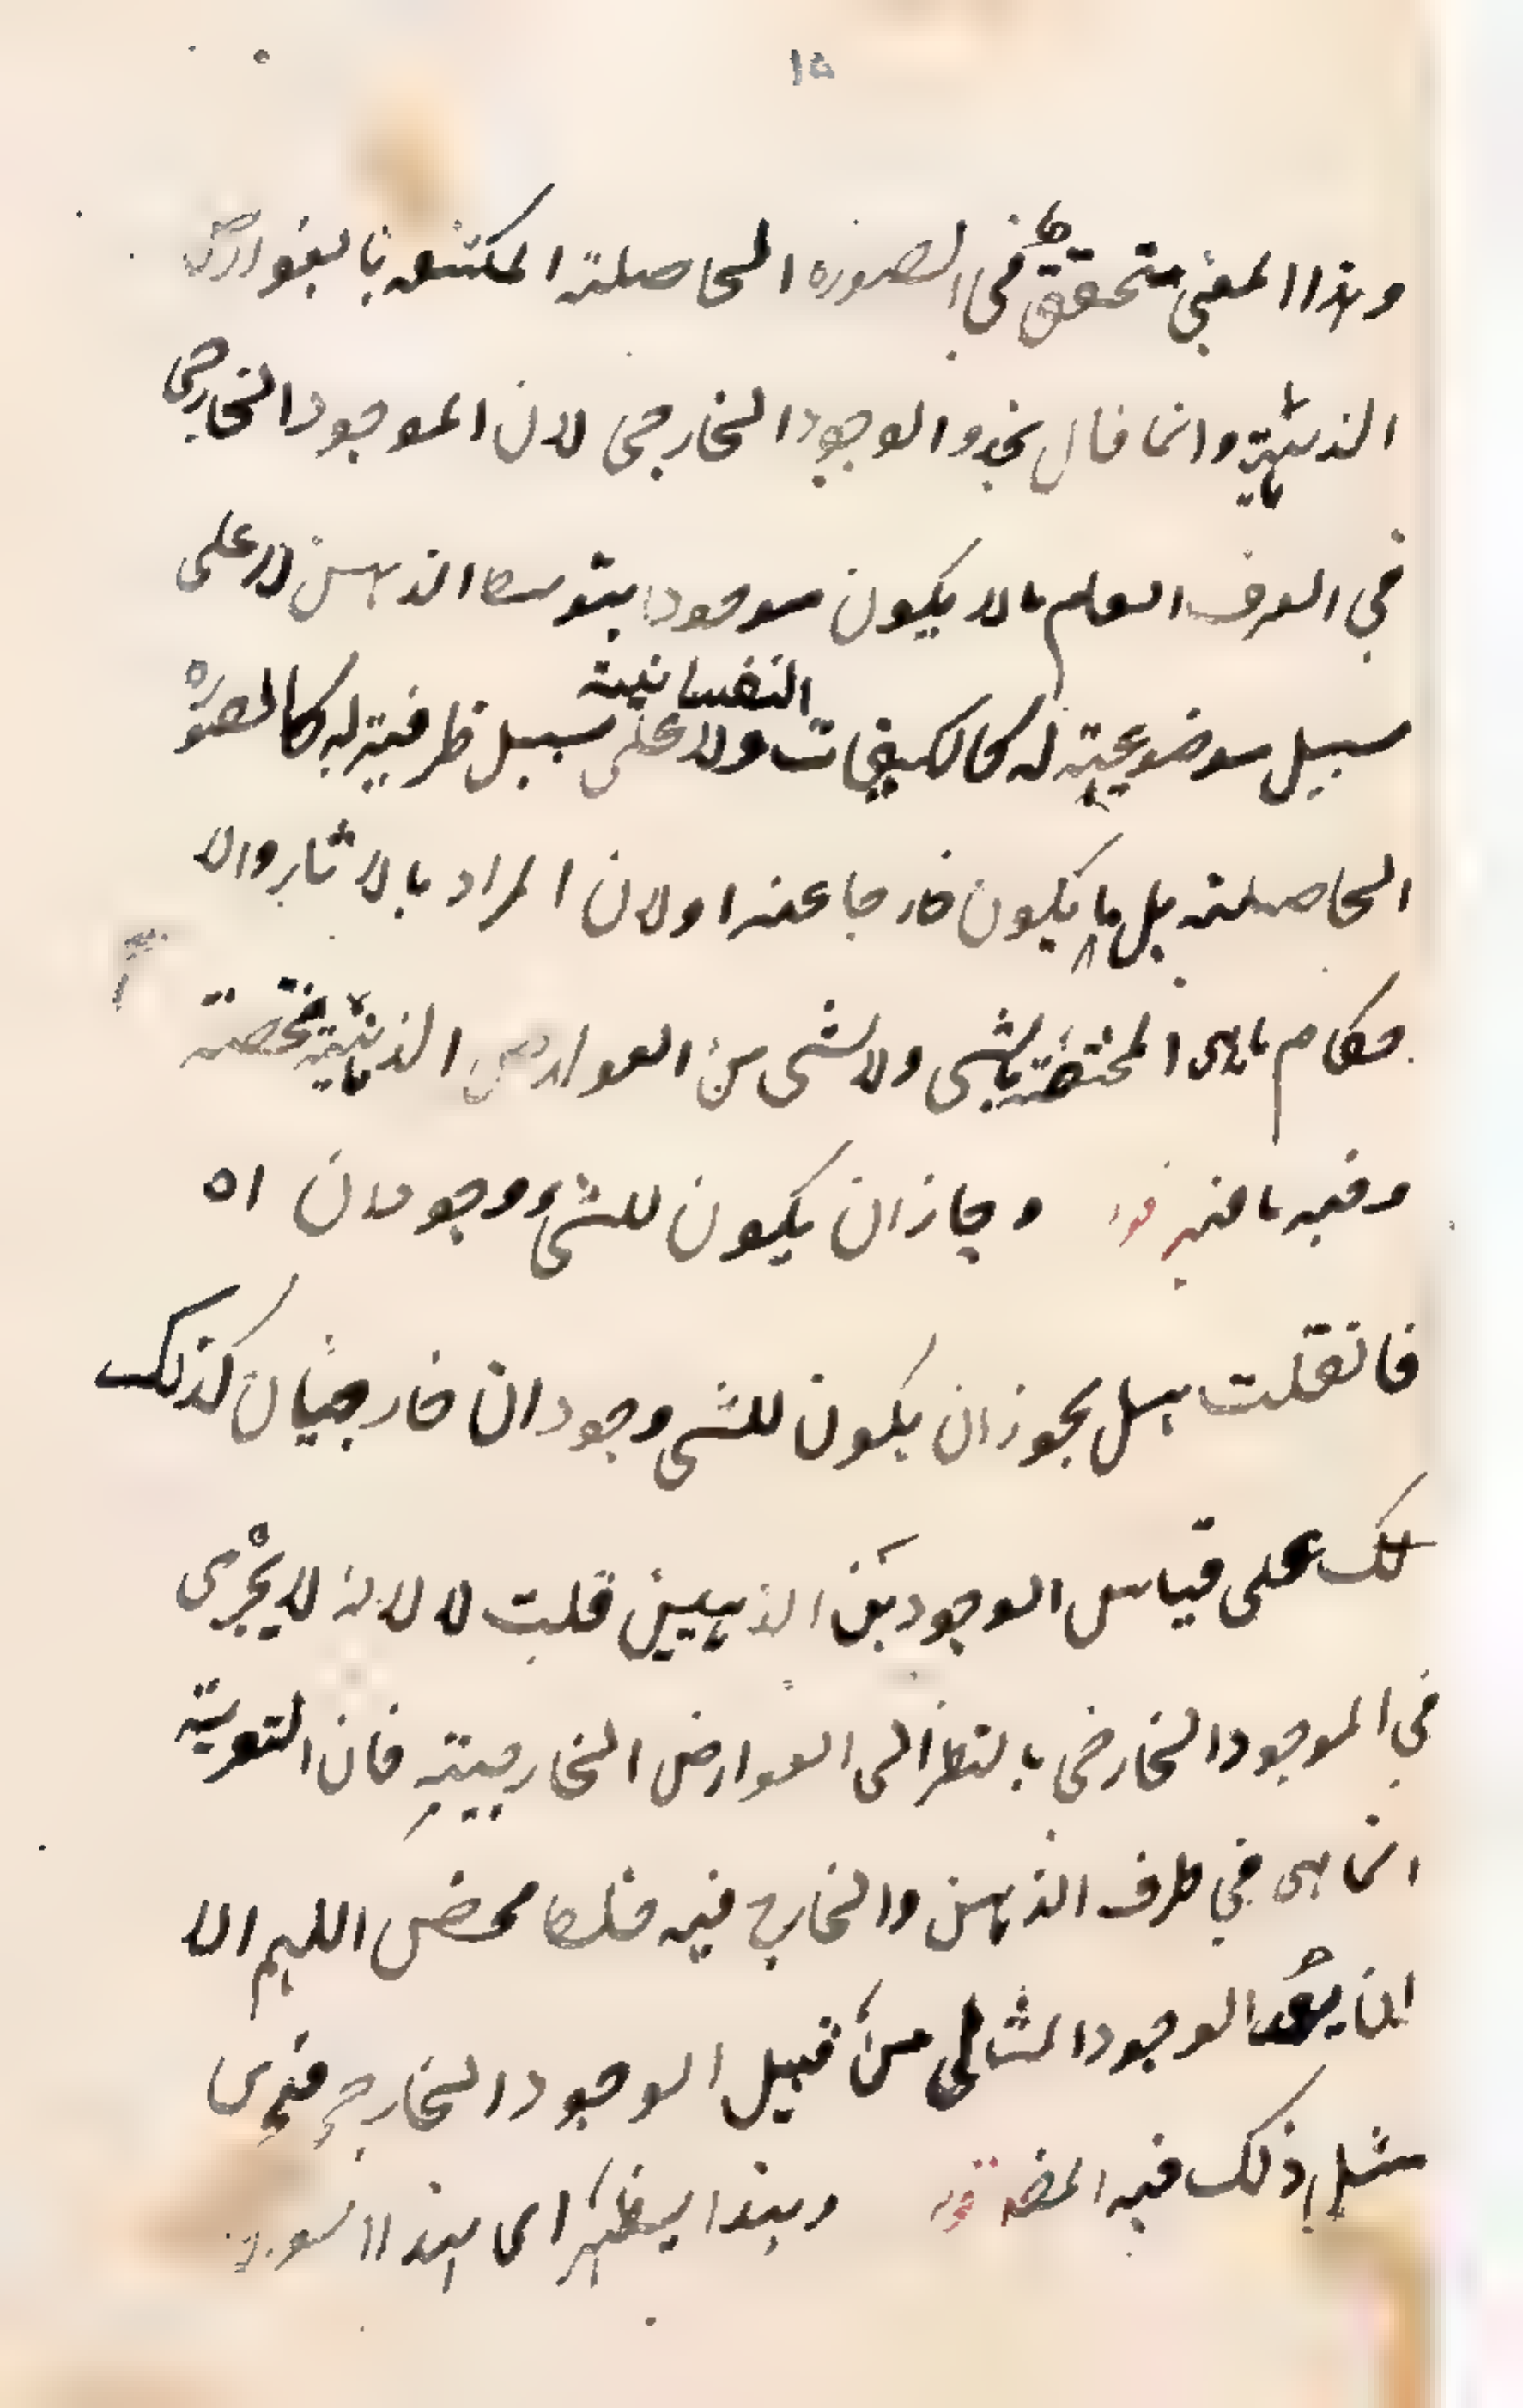 ١٥
وهذا المعنى متحقق في الصورة الحاصلة المكتنفة بالعوارض
الذهنية وانما قال يحذو الوجود الخارجي لان الموجود الخارجي
في العرف العام ما لا يكون موجودا بتوسط الذهن لا على
سبيل موضوعية له كالكيفيات النفسانية ولا على سبيل ظرفية له كالصورة
الحاصلة بل ما يكون خارجا عنه او لان المراد بالاثار والا
حكام ما هى المختصة بالشى ولا شى من العوارض الذهنية مختصة
وفيه ما فيه قوله وجاز ان يكون للشئ وجودان اه
فان قلت هل يجوز ان يكون للشى وجودان خارجيان كذلك
لك على قياس الوجودين الذهنيين قلت لا لانه لا يجرى
في الموجود الخارجى بالنظر الى العوارض الخارجية فان التعرية
انما هى في ظرف الذهن والخارج فيه خلط محض اللهم الا
ان يعد الوجود المثالى من قبيل الوجود الخارجى فيجرى
مثل ذلك فيه قوله وبهذا يظهر اى بهذا